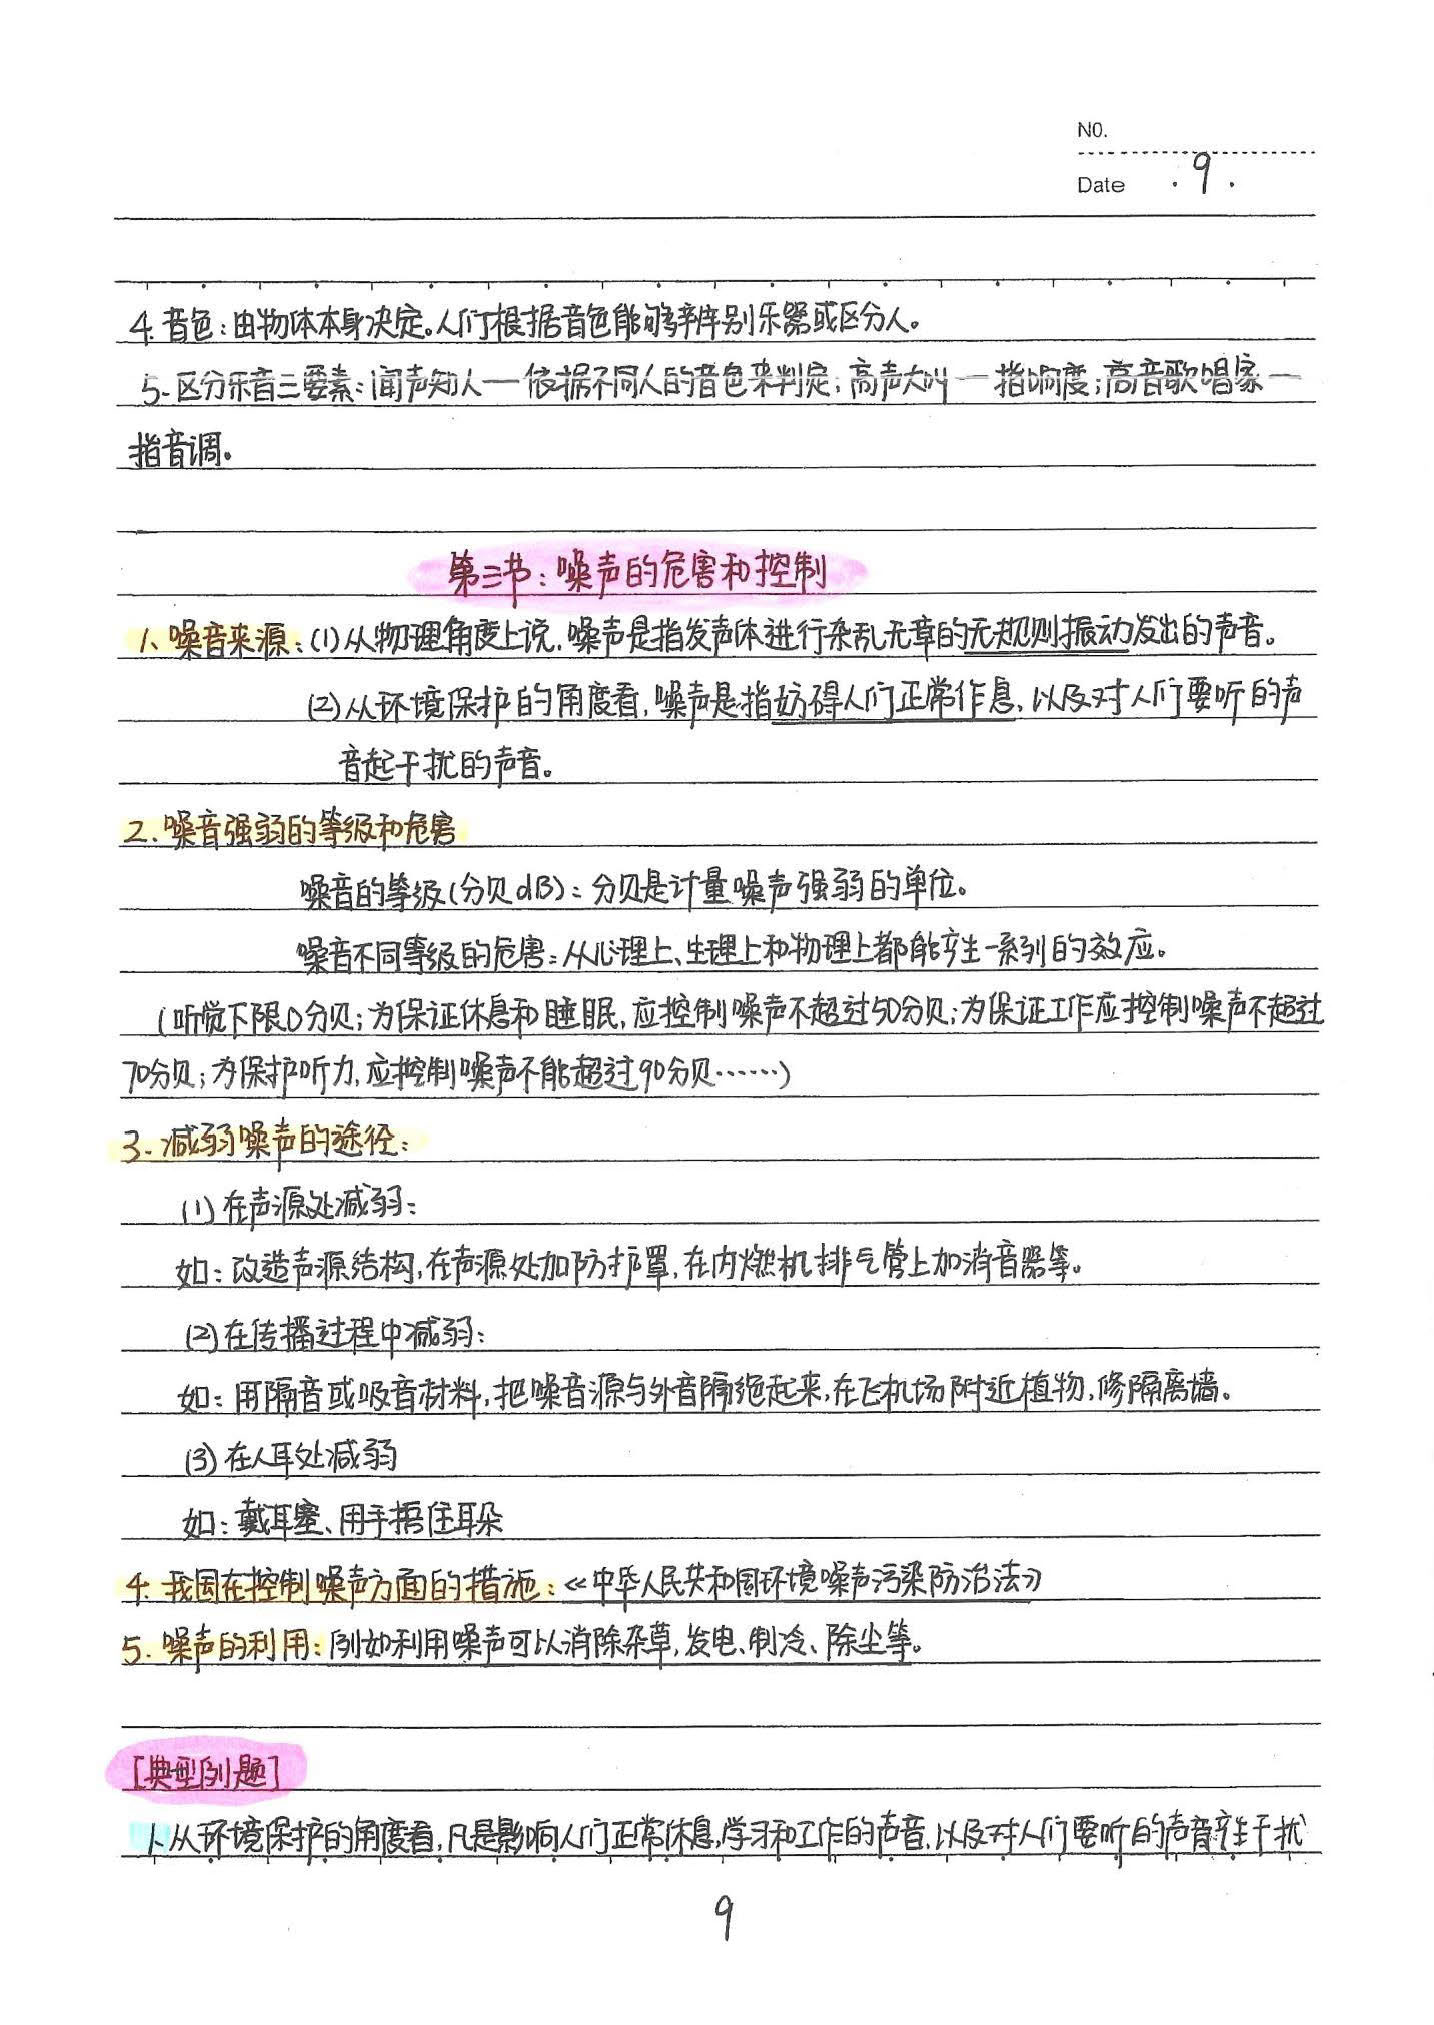 NO.
Date .9.
4. 音色：由物体本身决定。人们根据音色能够辨别乐器或区分人。
5. 区分乐音三要素：闻声知人——依据不同人的音色来判定；高声大叫——指响度；高音歌唱家——
指音调。
第三节：噪声的危害和控制
1、噪音来源：(1)从物理角度上说，噪声是指发声体进行杂乱无章的无规则振动发出的声音。
(2)从环境保护的角度看，噪声是指妨碍人们正常作息，以及对人们要听的声
音起干扰的声音。
2. 噪音强弱的等级和危害
噪音的等级(分贝dB)：分贝是计量噪声强弱的单位。
噪音不同等级的危害：从心理上、生理上和物理上都能产生一系列的效应。
(听觉下限0分贝；为保证休息和睡眠，应控制噪声不超过50分贝；为保证工作应控制噪声不超过
70分贝；为保护听力，应控制噪声不能超过90分贝……)
3. 减弱噪声的途径：
(1)在声源处减弱：
如：改造声源结构，在声源处加防护罩，在内燃机排气管上加消音器等。
(2)在传播过程中减弱：
如：用隔音或吸音材料，把噪音源与外音隔绝起来，在飞机场附近植物，修隔离墙。
(3)在人耳处减弱
如：戴耳塞、用手捂住耳朵
4. 我国在控制噪声方面的措施：《中华人民共和国环境噪声污染防治法》
5. 噪声的利用：例如利用噪声可以消除杂草，发电、制冷、除尘等。
[典型例题]
1.从环境保护的角度看，凡是影响人们正常休息，学习和工作的声音，以及对人们要听的声音产生干扰
9